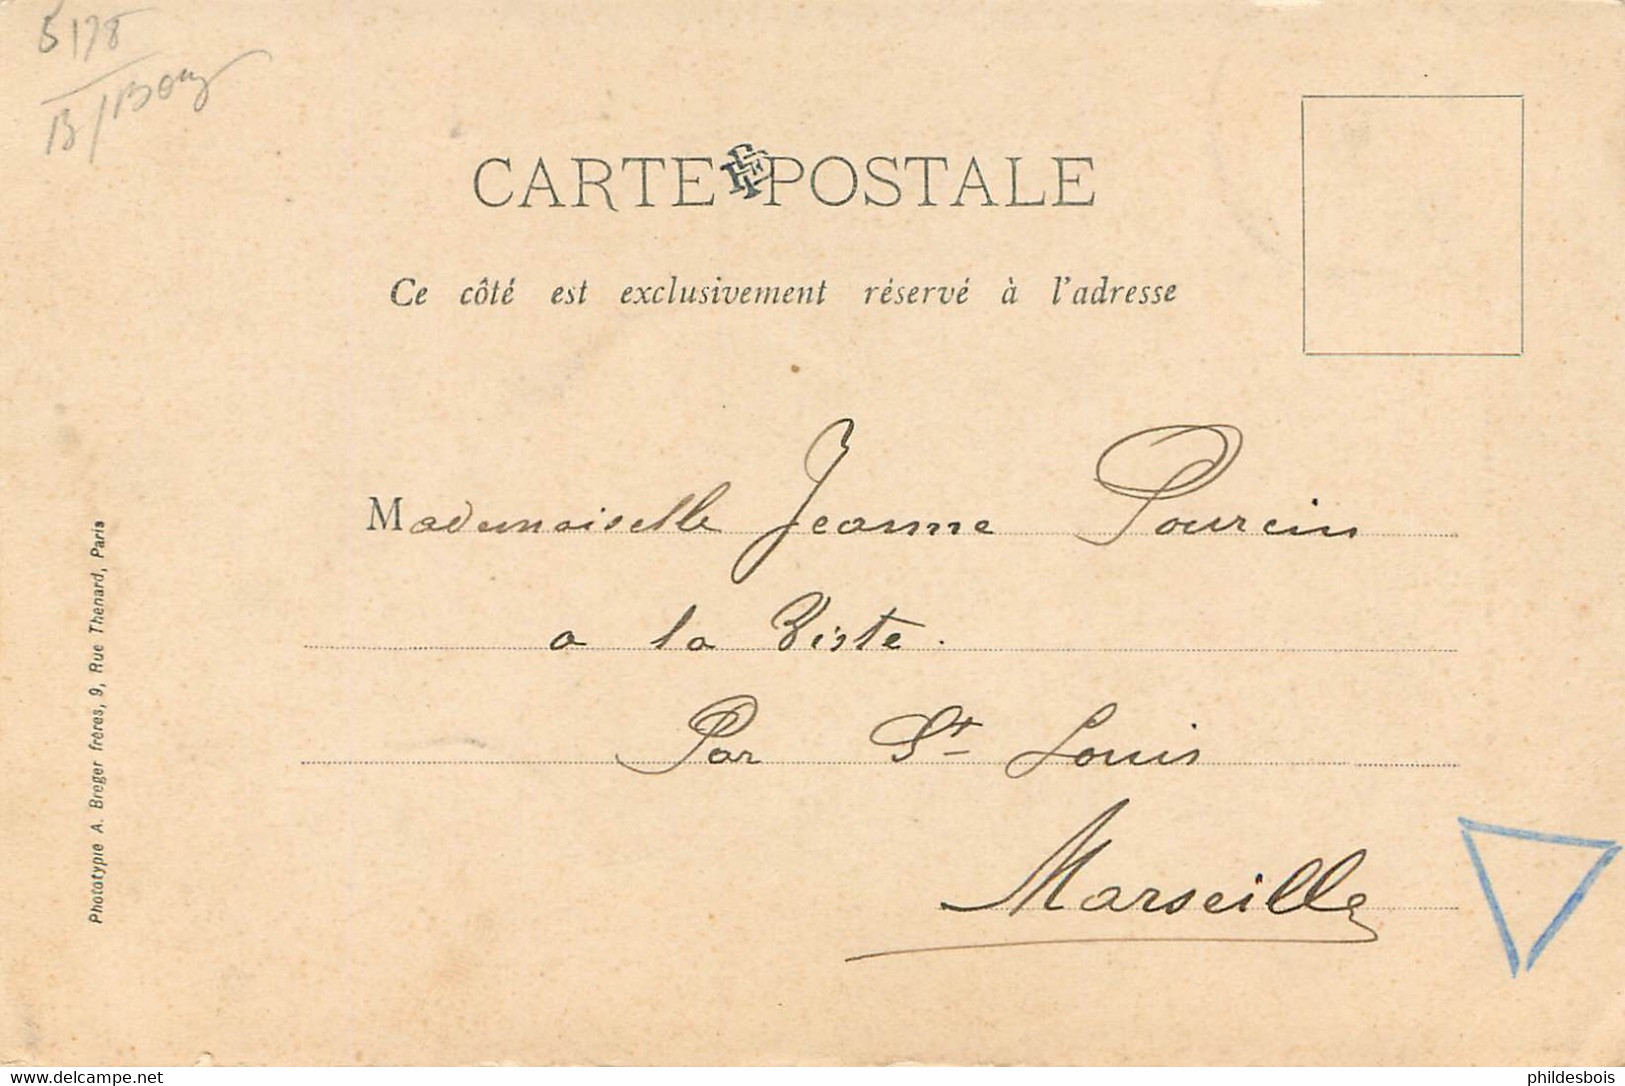 5178
CARTE POSTALE
Ce côté est exclusivement réservé à l'adresse
Mademoiselle Jeanne Pourcin
a la Viste.
Par St Louis
Marseille
Phototypie A. Breger frères, 9, Rue Thenard, Paris
delcampe.net
phildesbois